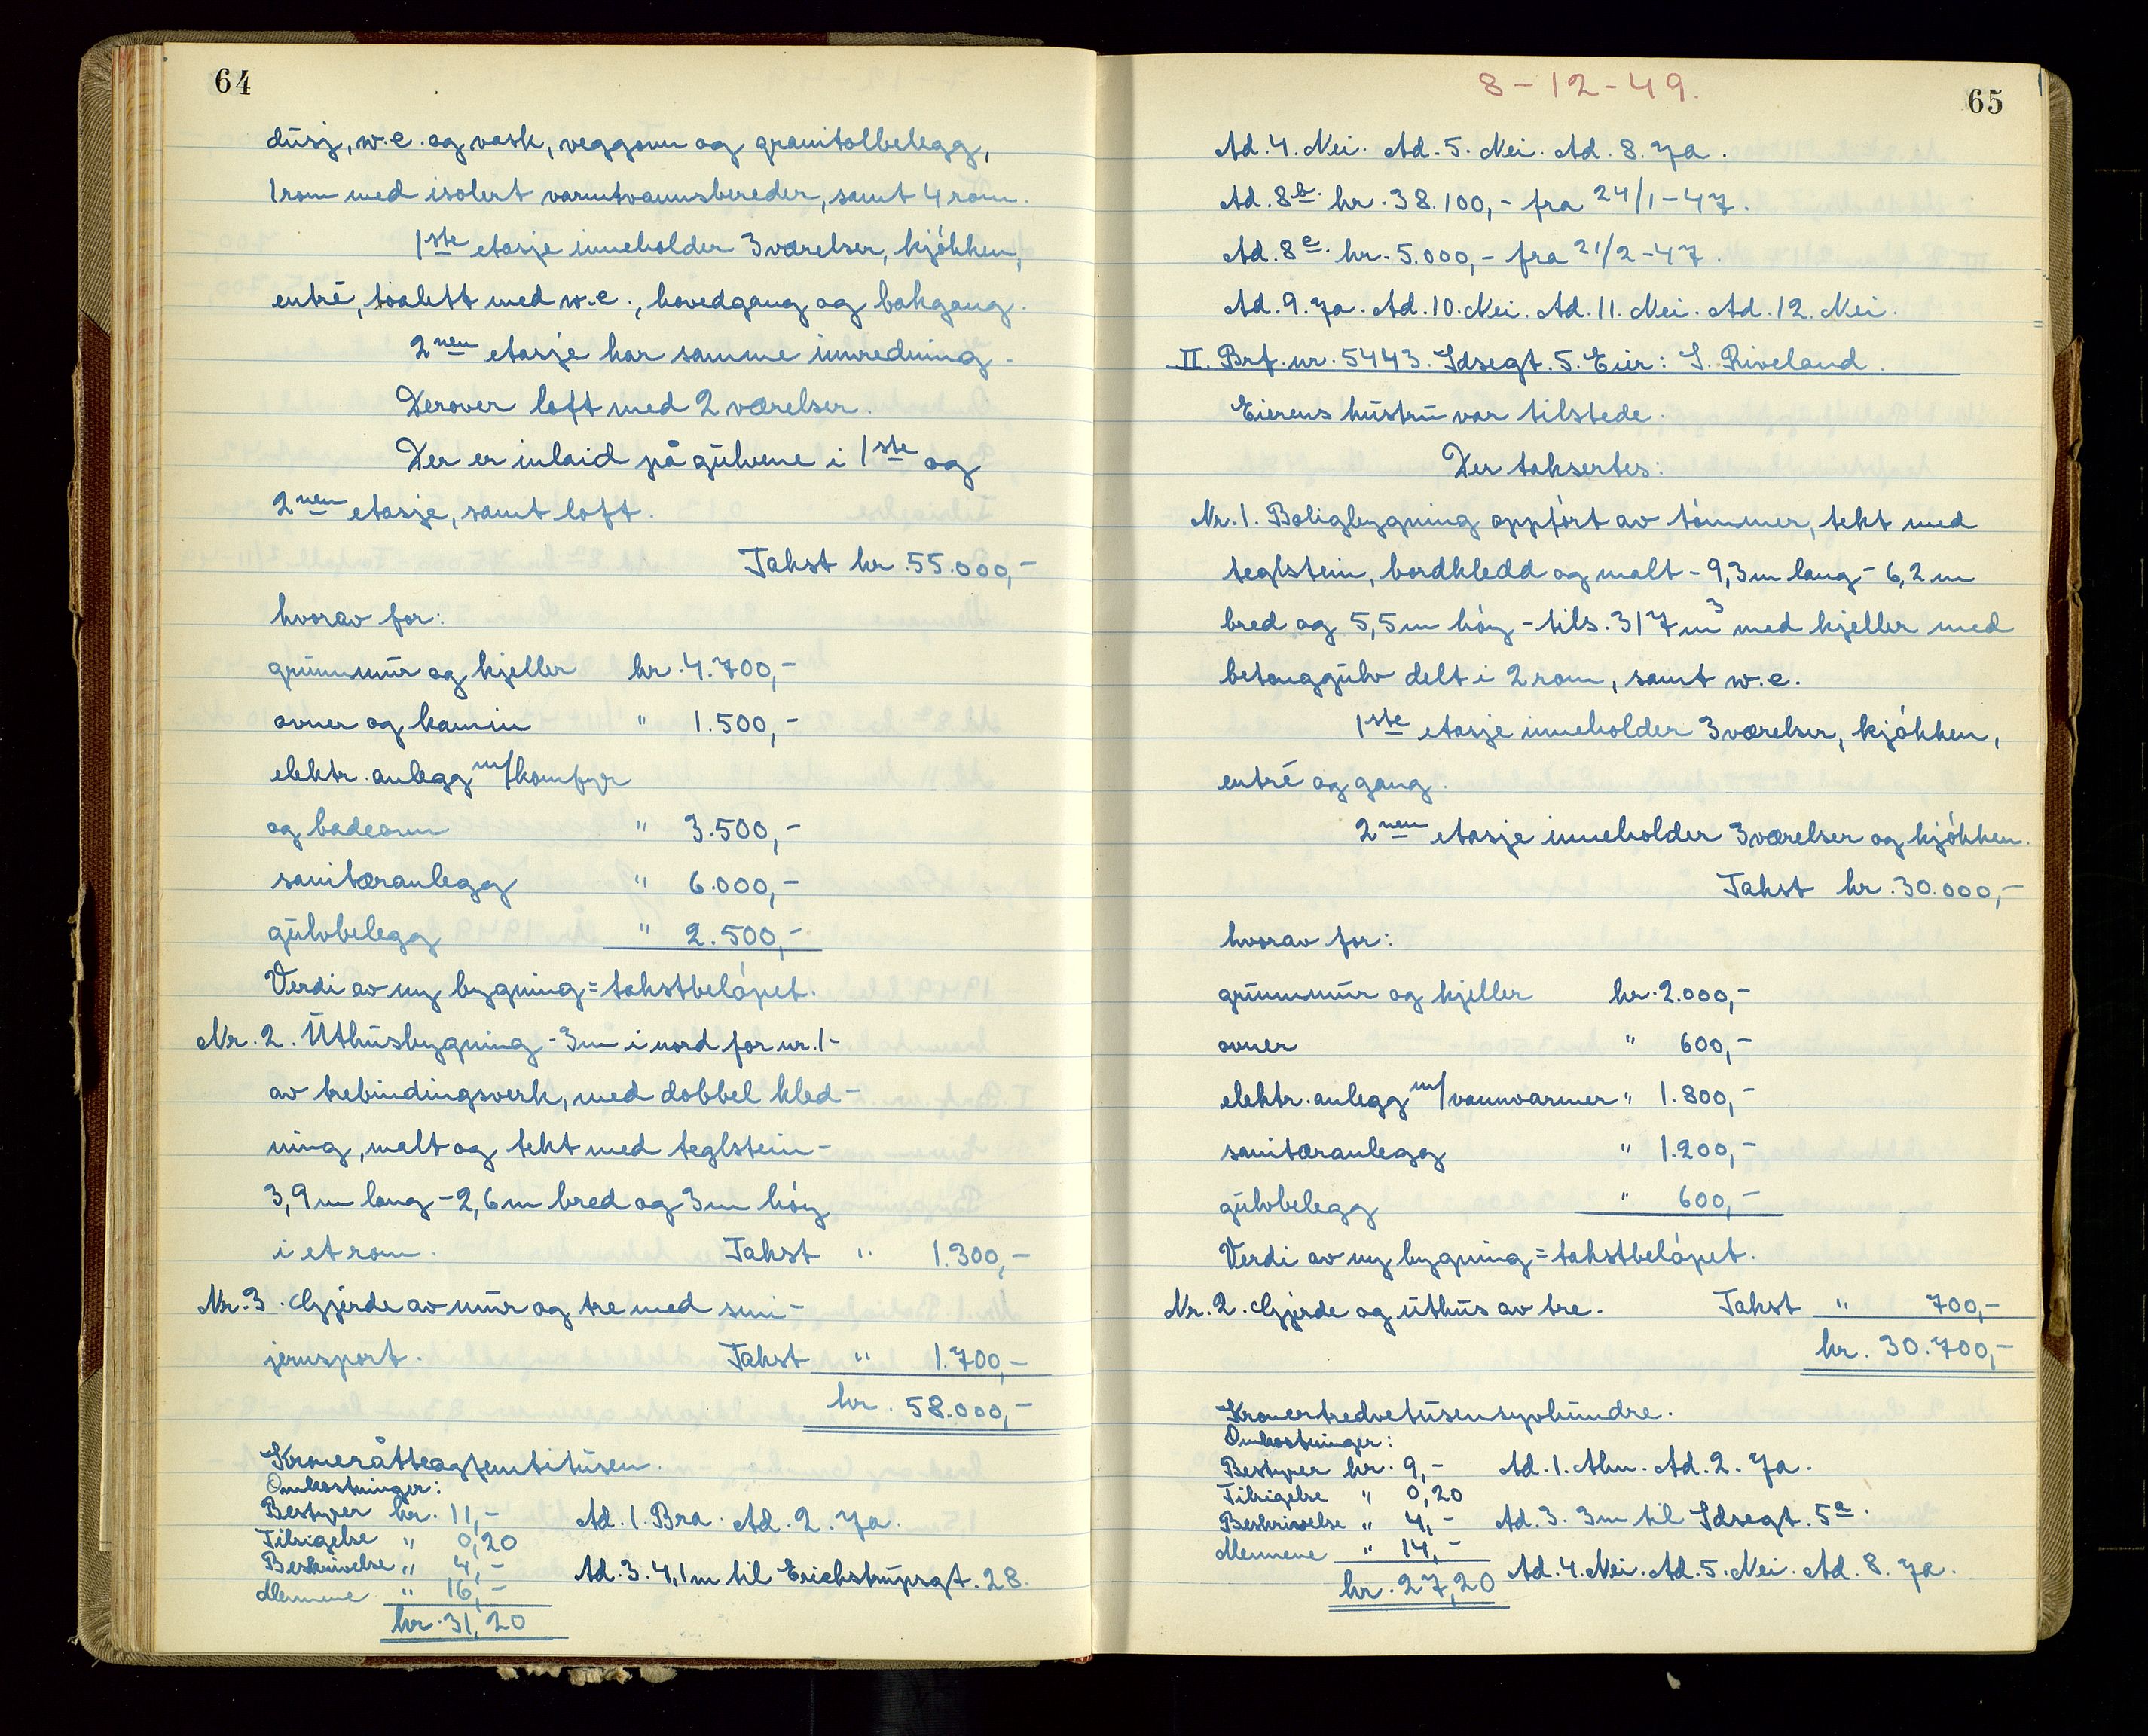 64
dusj, w.c. og vask, veggovn og granitolbelegg,
1 rom med isolert varmtvannsbereder, samt 4 rom.
1ste etasje inneholder 3 værelser, kjøkken,
entré, toalett med w.c., hovedgang og bakgang.
2nen etasje har samme innredning.
Derover loft med 2 værelser.
Der er inlaid på gulvene i 1ste og
2nen etasje, samt loft.
Takst kr. 55.000,-
hvorav for:
grunnmur og kjeller kr. 4.700,-
ovner og kamin " 1.500,-
elektr. anlegg m/komfyr
og badeovn " 3.500,-
sanitæranlegg " 6.000,-
gulvbelegg " 2.500,-
Verdi av ny bygning = takstbeløpet.
Nr. 2. Uthusbygning - 3m i nord for nr. 1 -
av trebindingsverk, med dobbel kled-
ning, malt og tekt med teglstein -
3,9 m lang - 2,6 m bred og 3 m høy
i et rom. Takst " 1.300,-
Nr. 3. Gjerde av mur og tre med smi-
jernsport. Takst " 1.700,-
kr. 58.000,-
Kroneråtteogfemtitusen.
Omkostninger:
Bestyrer kr. 11,-
Tilsigelse " 0,20
Beskrivelse " 4,-
Mennene " 16,-
kr. 31,20
Ad. 1. Bra. Ad. 2. Ja.
Ad. 3. 4,1 m til Erichstrupsgt. 28.
8-12-49.
65
Ad. 4. Nei. Ad. 5. Nei. Ad. 8. Ja.
Ad. 8b. kr. 38.100,- fra 24/1-47.
Ad. 8c. kr. 5.000,- fra 21/2-47.
Ad. 9. Ja. Ad. 10. Nei. Ad. 11. Nei. Ad. 12. Nei.
II. Brf. nr. 5443. Idsegt. 5. Eier: S. Riveland.
Eierens hustru var tilstede.
Der taksertes:
Nr. 1. Boligbygning oppført av tømmer, tekt med
teglstein, bordkledd og malt - 9,3 m lang - 6,2 m
bred og 5,5 m høy - tils. 317 m3 med kjeller med
betonggulv delt i 2 rom, samt w.c.
1ste etasje inneholder 3 værelser, kjøkken,
entré og gang.
2nen etasje inneholder 3 værelser og kjøkken.
Takst kr. 30.000,-
hvorav for:
grunnmur og kjeller kr. 2.000,-
ovner " 600,-
elektr. anlegg m/vannvarmer " 1.800,-
sanitæranlegg " 1.200,-
gulvbelegg " 600,-
Verdi av ny bygning = takstbeløpet.
Nr. 2. Gjerde og uthus av tre. Takst " 700,-
kr. 30.700,-
Kronertredvetusensyvhundre.
Omkostninger:
Bestyrer kr. 9,-
Tilsigelse " 0,20
Beskrivelse " 4,-
Mennene " 14,-
kr. 27,20
Ad. 1. Alm. Ad. 2. Ja.
Ad. 3. 3 m til Idsegt. 5a.
Ad. 4. Nei. Ad. 5. Nei. Ad. 8. Ja.